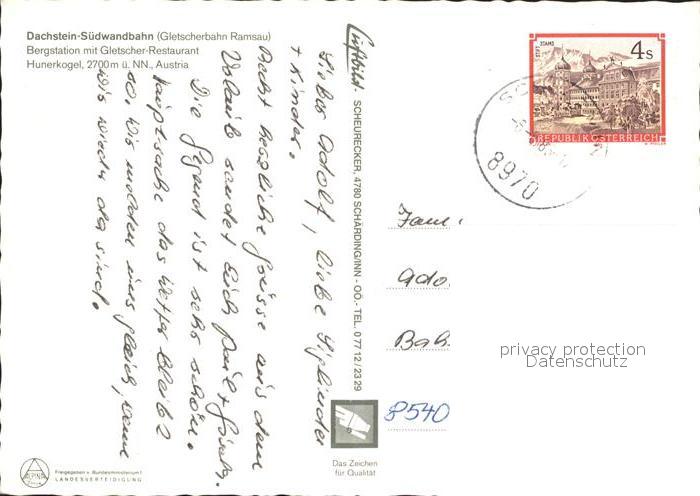 Dachstein-Südwandbahn (Gletscherbahn Ramsau)
Bergstation mit Gletscher-Restaurant
Hunerkogel, 2700 m ü. NN., Austria
Lieber Adolf, liebe
+ Kinder.
Recht herzliche Grüsse aus dem
Urlaub sendet Euch
Die Gegend ist sehr schön.
Hauptsache das Wetter bleibt
so. Wir melden uns gleich, wenn
wir wieder da sind.
Luftbild: SCHEURECKER, 4780 SCHÄRDING/INN - OÖ.- TEL. 0 77 12 / 23 29
STIFT STAMS
4 S
REPUBLIK ÖSTERREICH
8970
Fam.
Ado.
Bah.
8540
privacy protection
Datenschutz
Das Zeichen
für Qualität
ALPINA
Freigegeben v. Bundesministerium f.
LANDESVERTEIDIGUNG